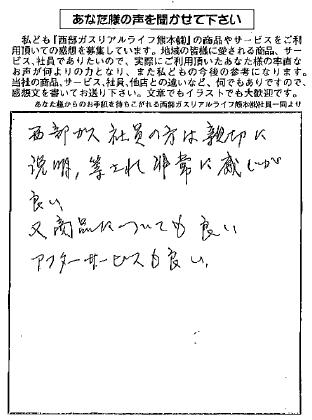 あなた様の声を聞かせて下さい
私ども『西部ガスリアルライフ熊本㈱』の商品やサービスをご利
用頂いての感想を募集しています。地域の皆様に愛される商品、サー
ビス、社員でありたいので、実際にご利用頂いたあなた様の率直な
お声が何よりの力となり、また私どもの今後の参考になります。
当社の商品、サービス、社員、他店との違いなど、何でもありですので、
感想文を書いてお送り下さい。文章でもイラストでも大歓迎です。
あなた様からのお手紙を待ちこがれる西部ガスリアルライフ熊本㈱社員一同より
西部ガス社員の方は親切に
説明、等され非常に感じが
良い
又商品についても良い
アフターサービスも良い、